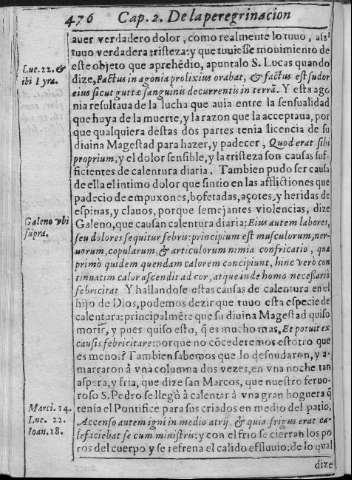 476 Cap. 2. De la peregrinacion
auer verdadero dolor, como realmente lo tuuo, assi
tuuo verdadera tristeza: y que tuuiesse mouimiento de
este objeto que aprehēdio, apuntalo S. Lucas quando
Luc. 22. &
dize, Factus in agonia prolixius orabat, & factus est sudor
ibi Lyra.
eius sicut guttæ sanguinis decurrentis in terrā. Y esta ago-
nia resultaua de la lucha que auia entre la sensualidad
que huya de la muerte, y la razon que la acceptaua, por
que qualquiera destas dos partes tenia licencia de su
diuina Magestad para hazer, y padecer, Quod erat sibi
proprium, y el dolor sensible, y la tristeza son causas suf-
ficientes de calentura diaria. Tambien pudo ser causa
de ella el intimo dolor que sintio en las afflictiones que
padecio de empuxones, bofetadas, açotes, y heridas de
espinas, y clauos, porque semejantes violencias, dize
Galeno vbi
Galeno, que causan calentura diaria: Eius autem labores,
supra.
seu dolores sequitur febris: principium est musculorum, ner-
uorum, copularum & articulorum nimia confricatio, quæ
primò quidem quendam calorem concipiunt, hinc verò con
tinuatim calor ascendit ad cor, atque inde homo necessariò
febricitat. Y hallandose estas causas de calentura en el
hijo de Dios, podemos dezir que tuuo esta especie de
calentura: principalmēte que su diuina Magestad quiso
morir, y pues quiso esto, q̄ es mucho mas, Et potuit ex
causis febricitare: porque no cōcederemos estotro que
es menos? Tambien sabemos que lo desnudaron, y a-
marraron à vna columna dos vezes, en vna noche tan
aspera, y fria, que dize san Marcos, que nuestro feruo-
roso S. Pedro se llegò à calentar à vna gran hoguera q̄
Marci. 14.
tenia el Pontifice para sus criados en medio del patio.
Luc. 22.
Accenso autem igni in medio atrij, & quia frigus erat ca-
Ioan. 18.
lefaciebat se cum ministris: y con el frio se cierran los po
ros del cuerpo y se refrena el calido effluuio: de lo qual
dize